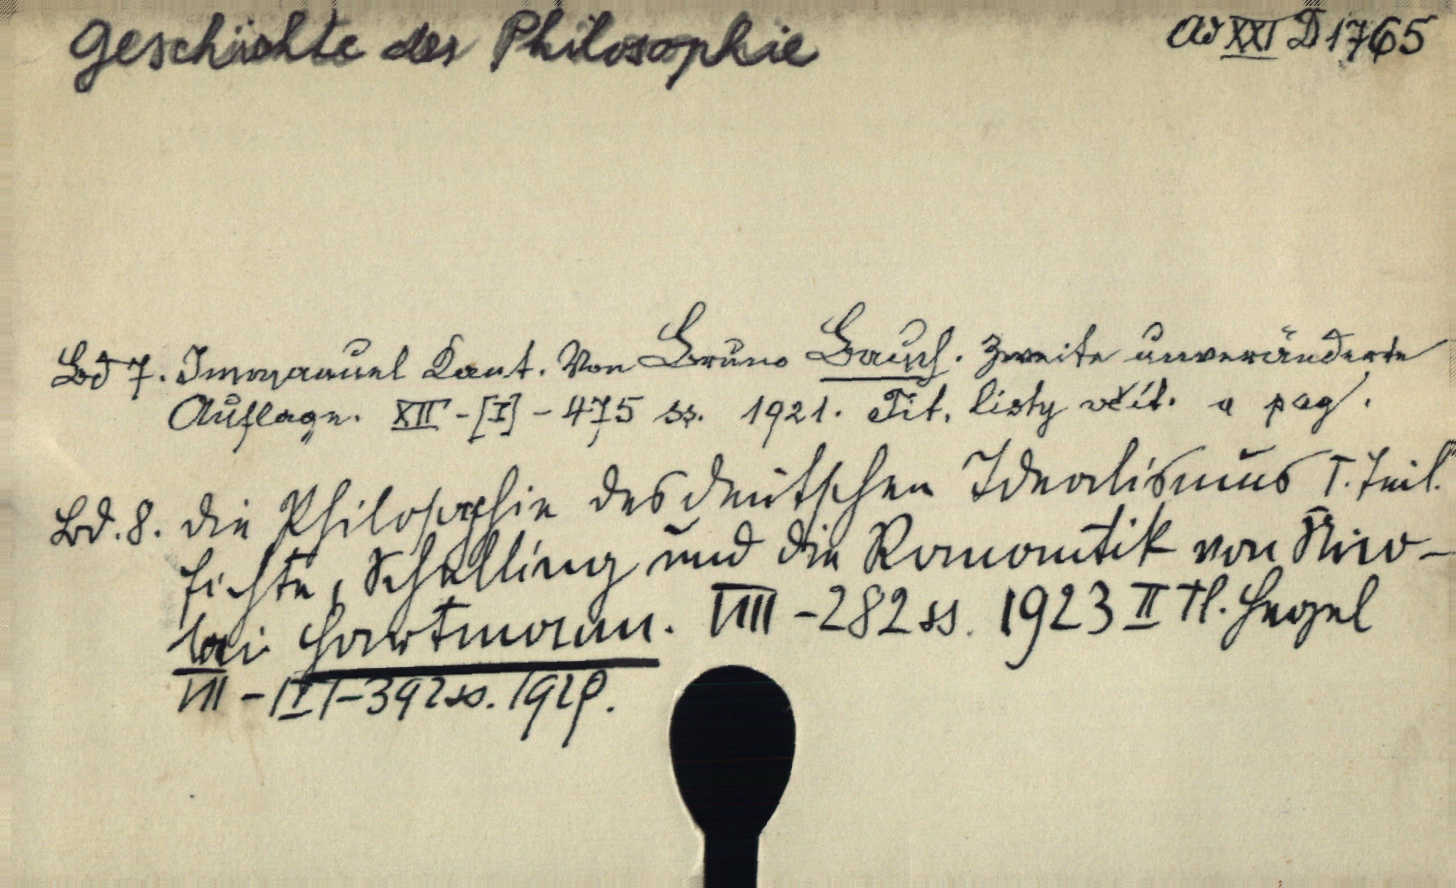 Geschichte der Philosophie
ad XXI D 1765
Bd 7. Immanuel Kant. Von Bruno Bauch. Zweite unveränderte
Auflage. XII - [I] - 475 ss. 1921. Tit. listy včít. v pag.
Bd. 8. die Philosophie des deutschen Idealismus I. Teil.
Fichte, Schelling und die Romantik von Nico-
lai Hartmann. VIII - 282 ss. 1923 II Tl. Hegel
VII - [I] - 392 ss. 1929.